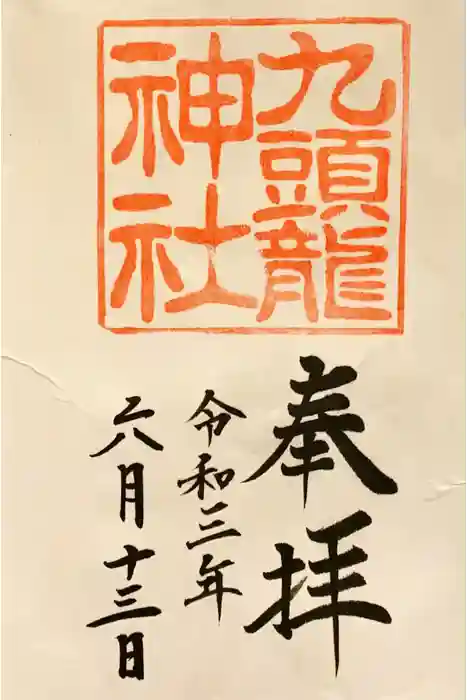 九頭龍
神社
奉拝
令和三年
六月十三日